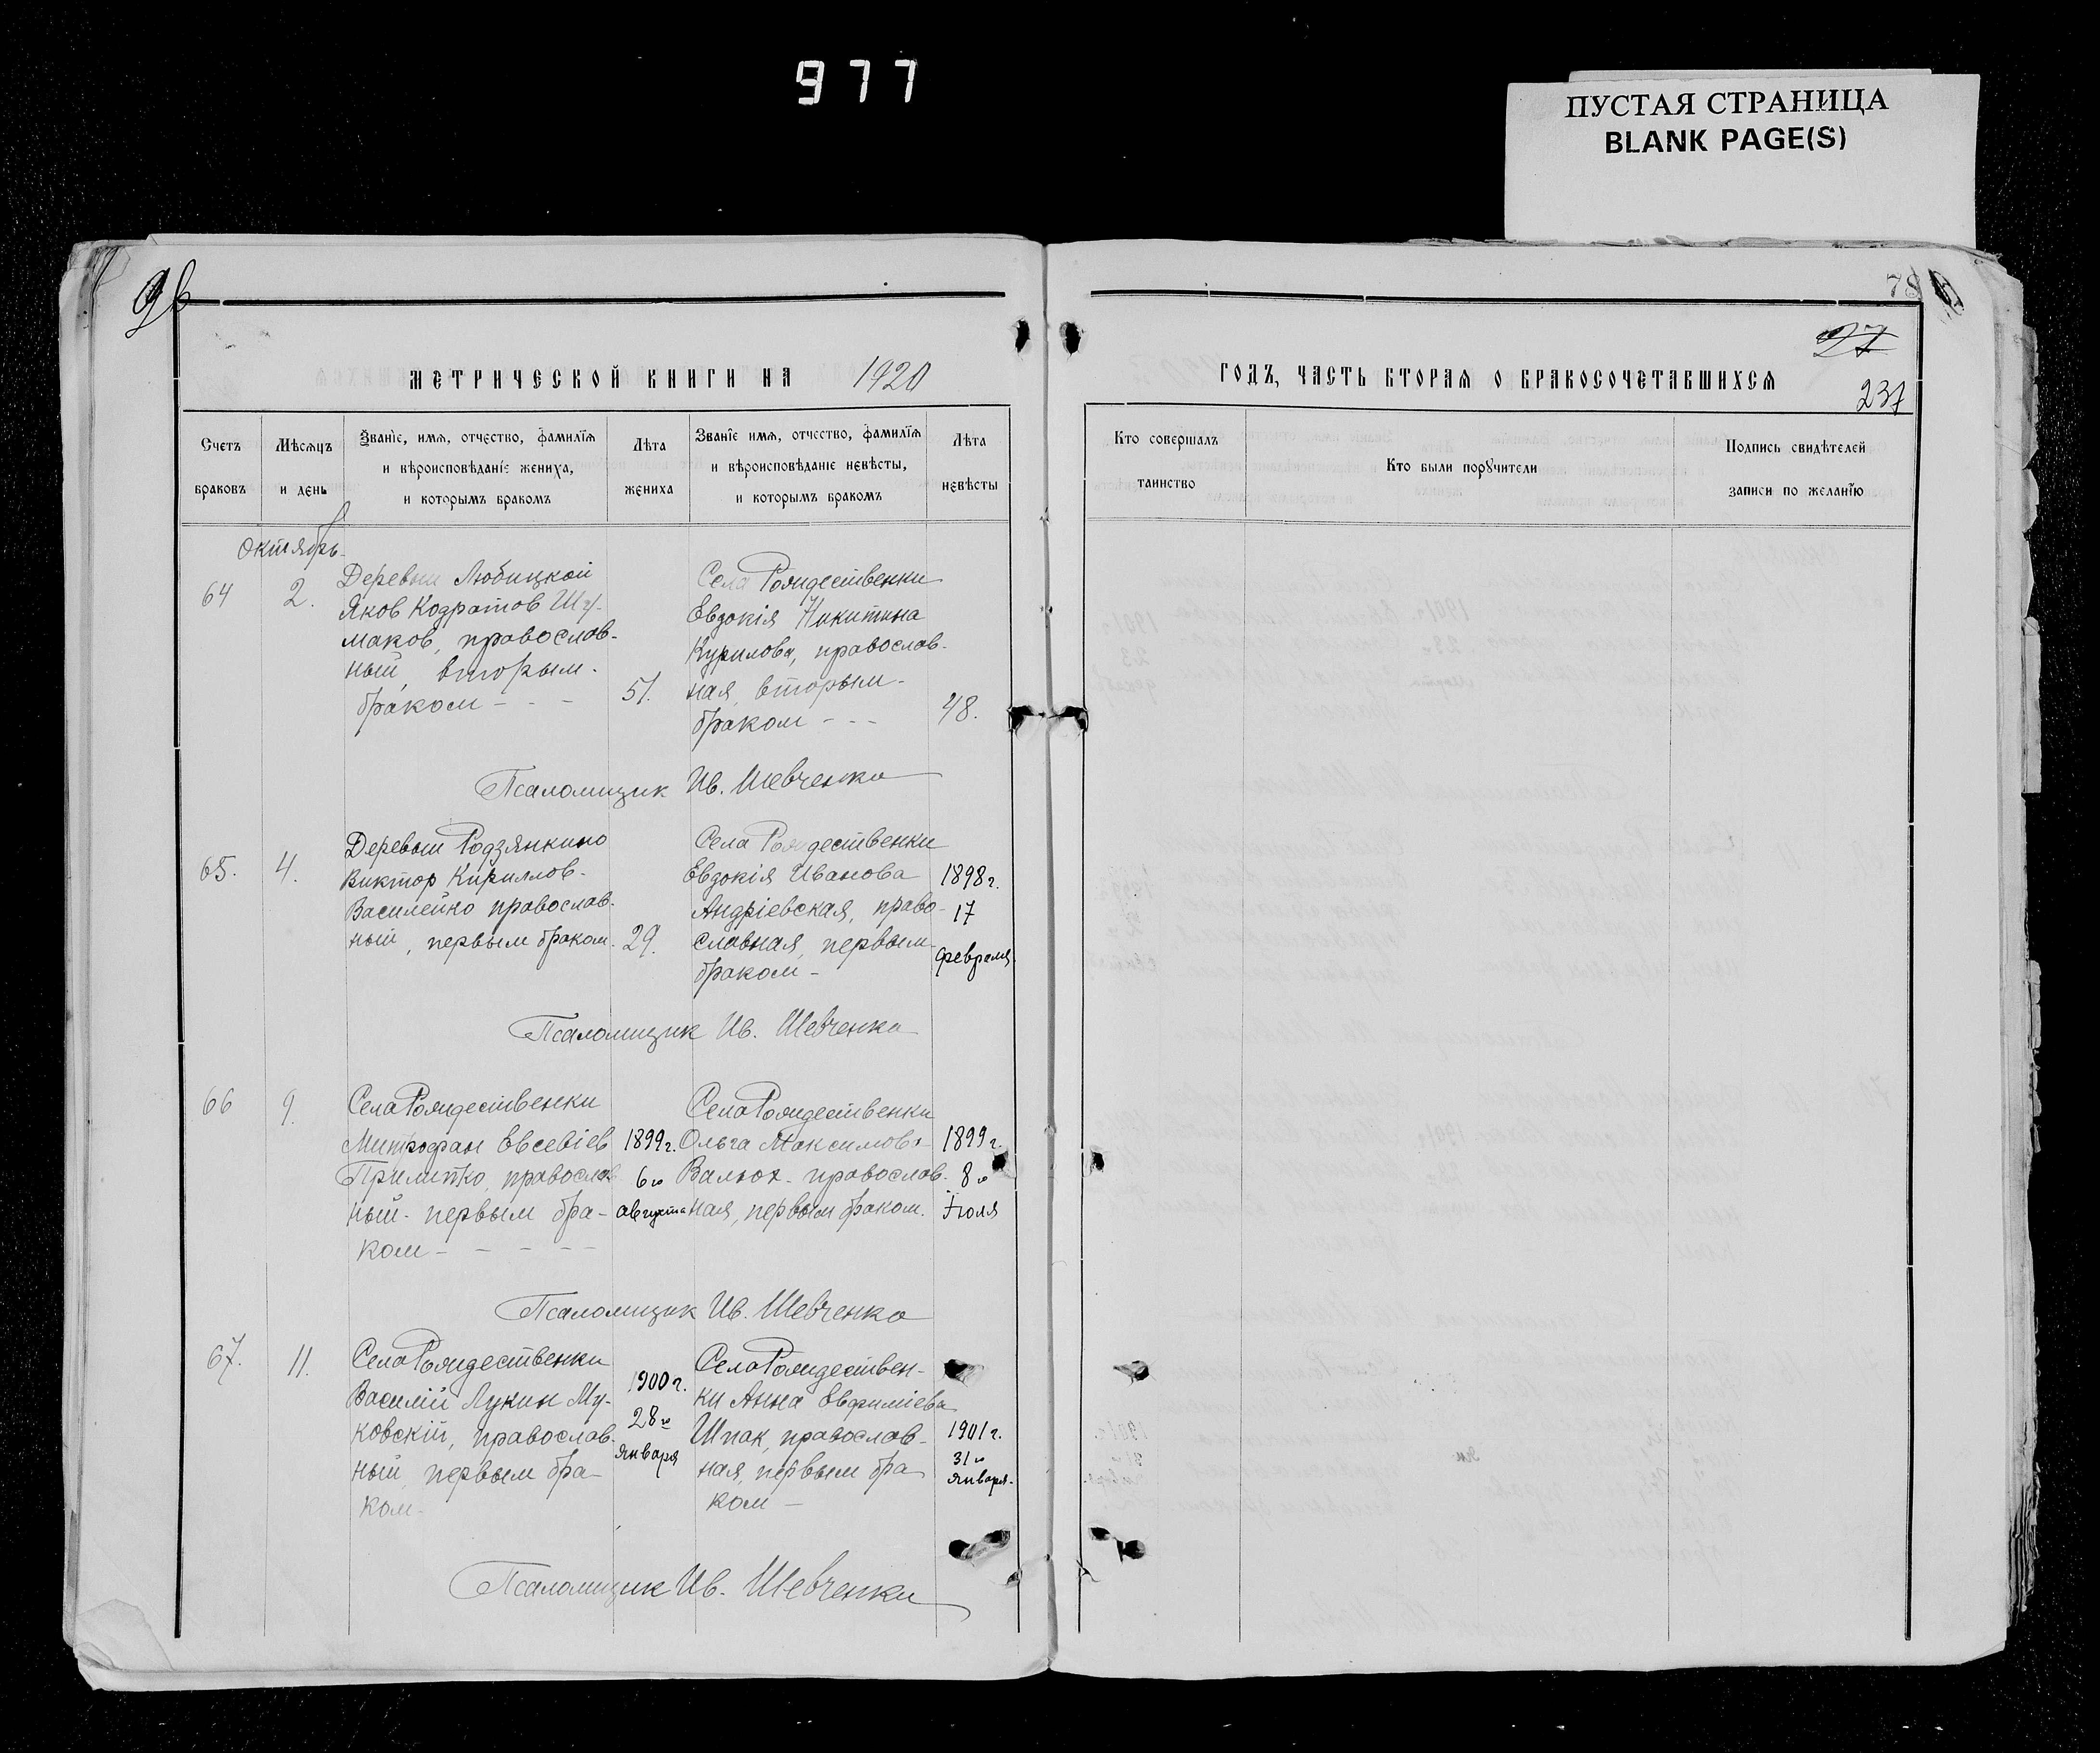 977
ПУСТАЯ СТРАНИЦА
BLANK PAGE(S)
78
27
237
МЕТРИЧЕСКОЙ КНИГИ НА 1920
ГОДЪ, ЧАСТЬ ВТОРАЯ О БРАКОСОЧЕТАВШИХСЯ
Счетъ
браковъ
Мѣсяцъ
и день
Званіе, имя, отчество, фамилія
и вѣроисповѣданіе жениха,
и которымъ бракомъ
Лѣта
жениха
Званіе имя, отчество, фамилія
и вѣроисповѣданіе невѣсты,
и которымъ бракомъ
Лѣта
невѣсты
Кто совершалъ
таинство
Кто были поручители
Подпись свидѣтелей
записи по желанію
Октябрь
64
2.
Деревни Любицкой
Яков Кодратов Шу-
маков, православ-
ный, вторым
браком - - -
51.
Села Рождественки
Евдокія Никитина
Курилова, православ-
ная, вторым
браком - - -
48.
Псаломщик Ив. Шевченко
65.
4.
Деревни Родзянкино
Виктор Кириллов
Василейко православ-
ный, первым браком.
29.
Села Рождественки
Евдокія Иванова
Андріевская, право-
славная, первым
браком -
1898 г.
17
февраля.
Псаломщик Ив. Шевченко
66
9.
Села Рождественки
Митрофан Евсевіев
Прилипко, православ
ный - первым бра-
ком - - - - -
1899 г.
6го
августа
Села Рождественки
Ольга Максимова
Валюх - православ-
ная, первым браком.
1899 г.
8го
Іюля
Псаломщик Ив. Шевченко
67.
11.
Села Рождественки
Василій Лукин Му-
ковскій, православ-
ный, первым бра-
ком -
1900 г.
28го
января
Села Рождествен-
ки Анна Евфиміева
Шпак, православ-
ная, первым бра-
ком -
1901 г.
31го
января.
Псаломщик Ив. Шевченко